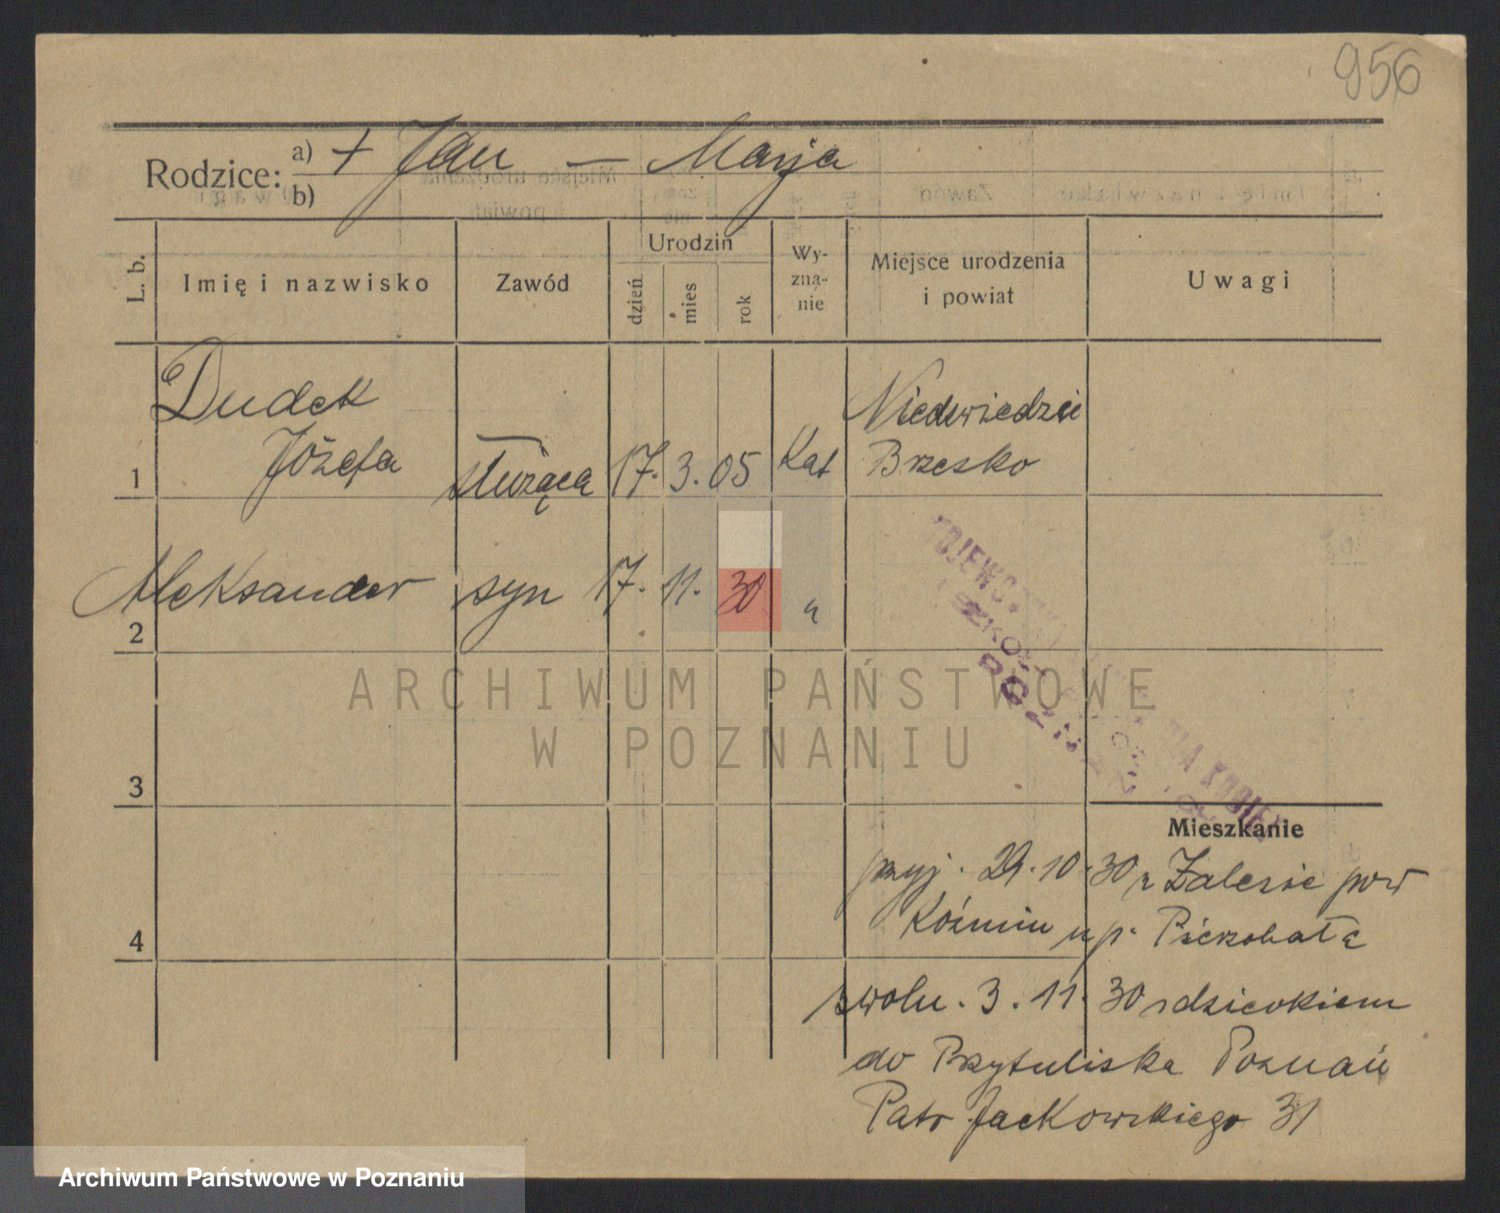 956
Rodzice: a) + Jan — Marja
b)
L. b.
Imię i nazwisko
Zawód
Urodzin
dzień
mies
rok
Wy-
zna-
nie
Miejsce urodzenia
i powiat
Uwagi
Dudek
Józefa
1
służąca
17. 3. 05
Kat
Niedwiedzie
Brzesko
Aleksander
2
syn
17. 11. 30
"
POZNAŃ
ARCHIWUM PAŃSTWOWE
W POZNANIU
3
Mieszkanie
przyj. 29.10.30 z Zalesie pow
Koźmin u p. Pierzchałą
4
zwoln. 3. 11. 30 z dzieckiem
do Przytuliska Poznań
Patr Jackowskiego 31
Archiwum Państwowe w Poznaniu